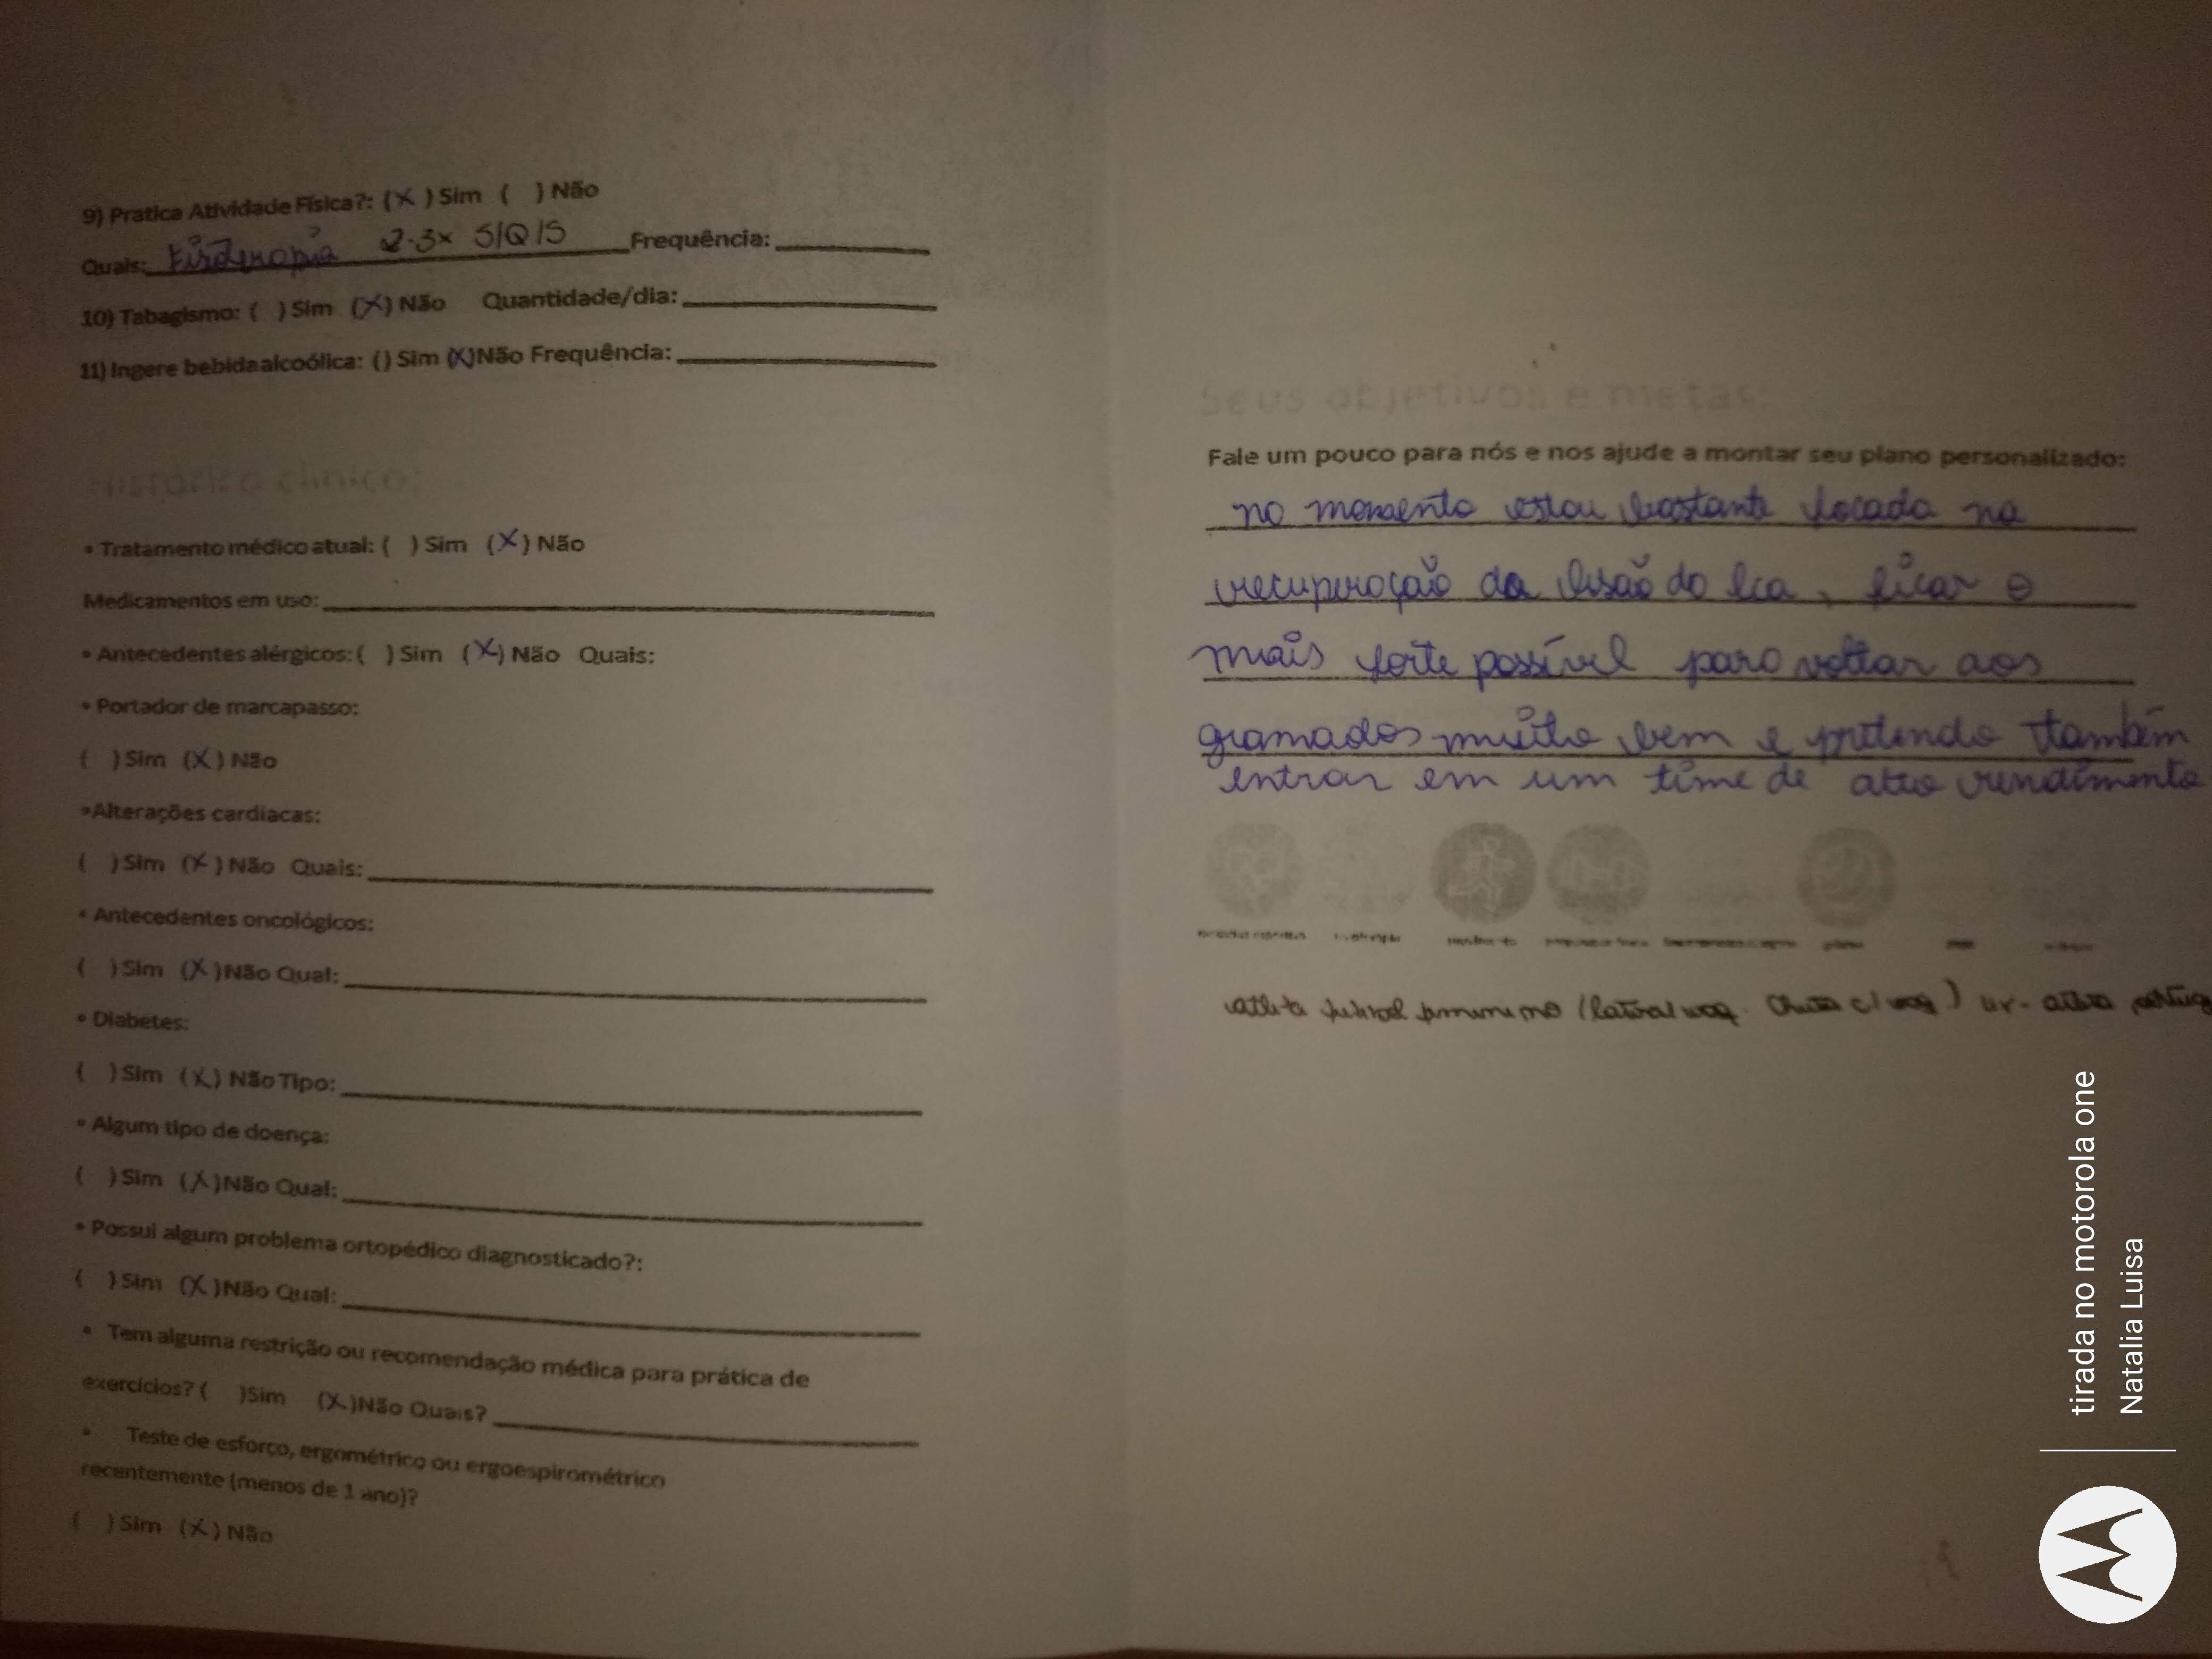 9) Pratica Atividade Física?: (X) Sim ( ) Não
Quais: Fisioterapia 2-3x S/Q/S Frequência:
10) Tabagismo: ( ) Sim (X) Não Quantidade/dia:
11) Ingere bebida alcoólica: ( ) Sim (X) Não Frequência:
Histórico clínico:
• Tratamento médico atual: ( ) Sim (X) Não
Medicamentos em uso:
• Antecedentes alérgicos: ( ) Sim (X) Não Quais:
• Portador de marcapasso:
( ) Sim (X) Não
•Alterações cardíacas:
( ) Sim (X) Não Quais:
• Antecedentes oncológicos:
( ) Sim (X) Não Qual:
• Diabetes:
( ) Sim (X) Não Tipo:
• Algum tipo de doença:
( ) Sim (X) Não Qual:
• Possui algum problema ortopédico diagnosticado?:
( ) Sim (X) Não Qual:
• Tem alguma restrição ou recomendação médica para prática de
exercícios? ( ) Sim (X) Não Quais?
• Teste de esforço, ergométrico ou ergoespirométrico
recentemente (menos de 1 ano)?
( ) Sim (X) Não
Seus objetivos e metas:
Fale um pouco para nós e nos ajude a montar seu plano personalizado:
no momento estou bastante focada na
recuperação da lesão do lca, ficar o
mais forte possível para voltar aos
gramados muito bem e pretendo também
entrar em um time de alto rendimento
atleta futebol feminino (lateral
tirada no motorola one
Natalia Luisa